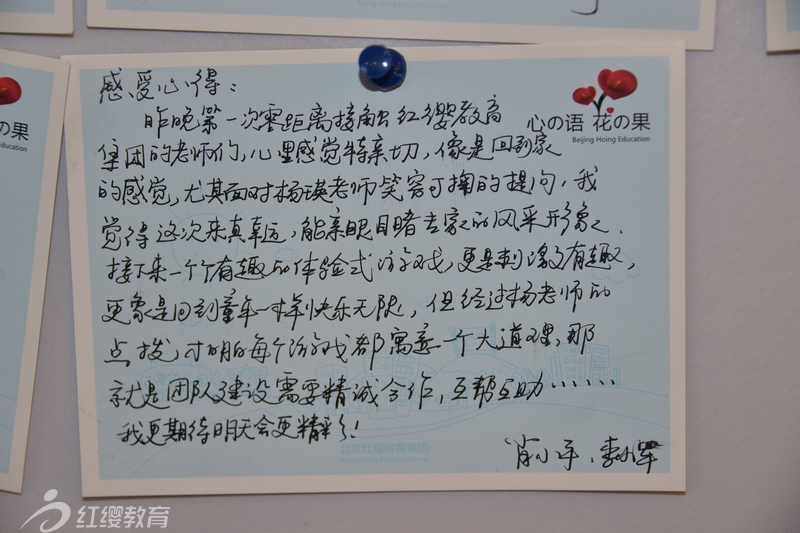 感受心得:
昨晚第一次零距离接触红缨教育
集团的老师们,心里感觉特亲切,像是回到家
的感觉,尤其面对杨瑛老师笑容可掬的提问,我
觉得这次来真幸运,能亲眼目睹专家的风采形象.
接下来一个个有趣的体验式游戏,更是刺激又有趣,
更象是回到童年一样快乐无比,但经过杨老师的
点拨,才明白每个游戏都寓意一个大道理,那
就是团队建设需要精诚合作,互帮互助……
我更期待明天会更精彩!
心の语 花の果
Beijing Hoing Education
花の果
Education
北京红缨教育集团
Beijing Hoing Education Group
红缨教育